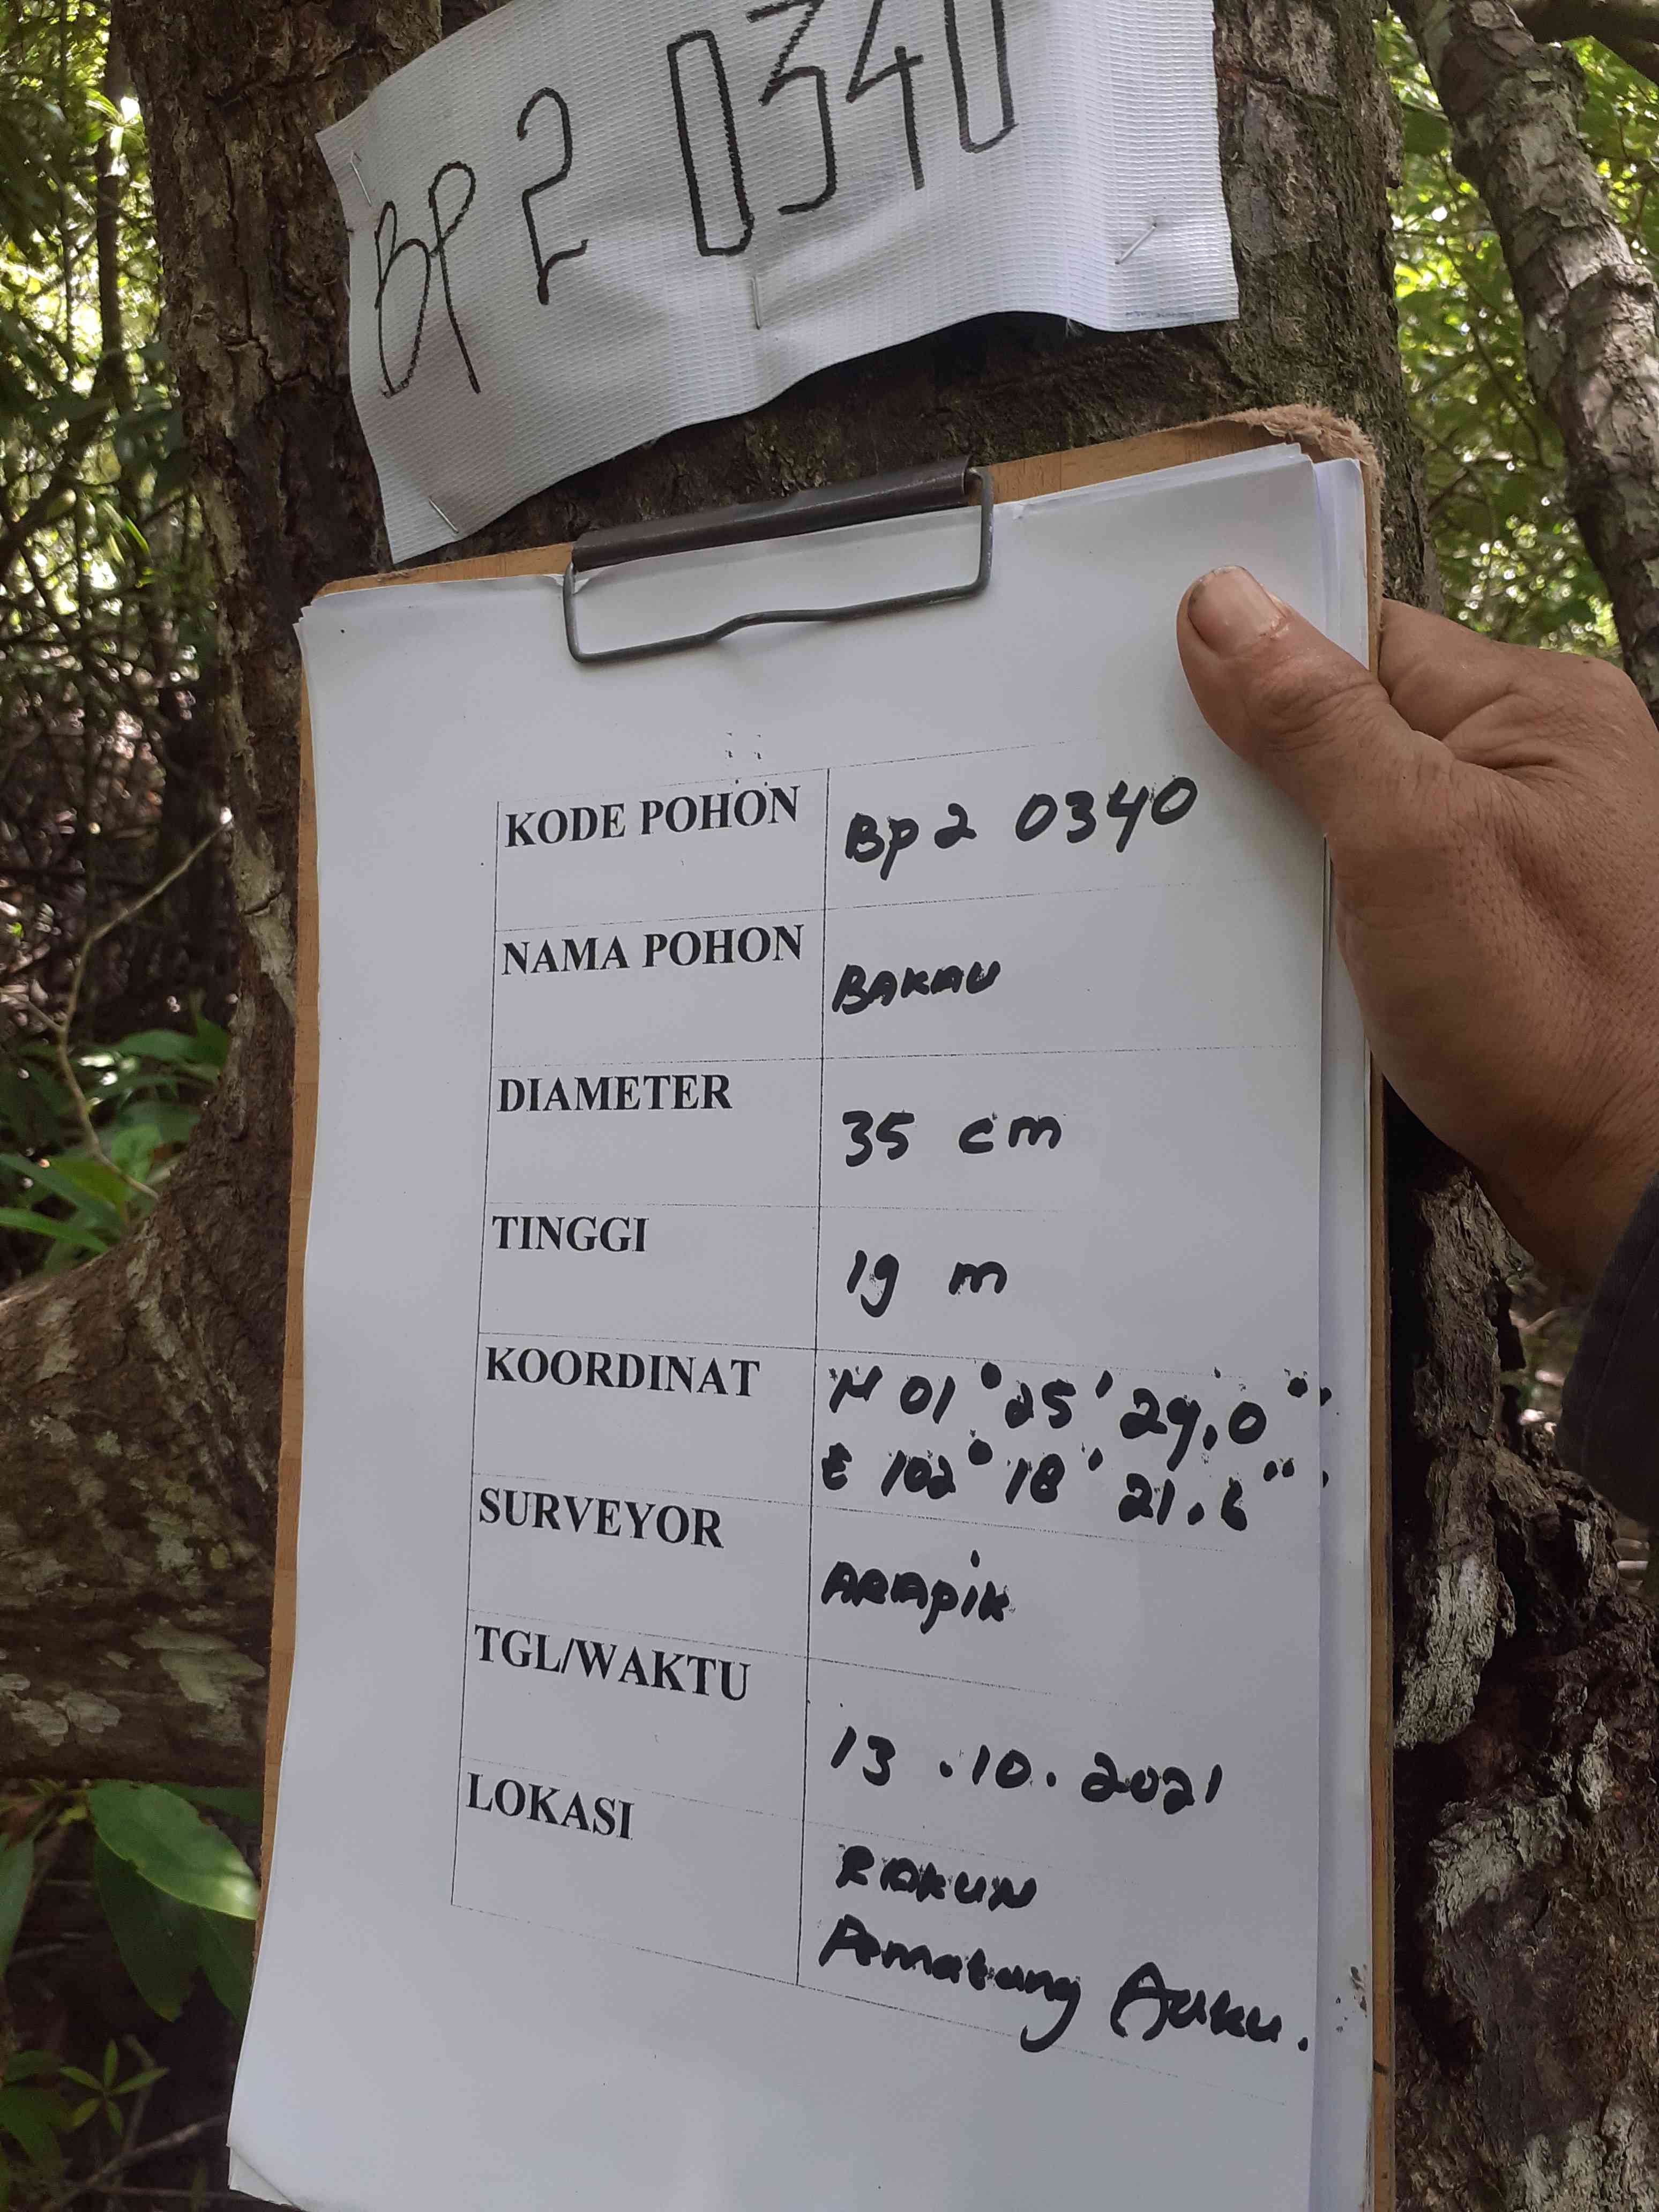 BP 2 0340
KODE POHON BP2 0340
NAMA POHON BAKAU
DIAMETER 35 cm
TINGGI 19 m
KOORDINAT N 01° 25' 29,0"
E 102° 18' 21.6"
SURVEYOR ARAPIK
TGL/WAKTU 13.10.2021
LOKASI RAKUN
Pematang